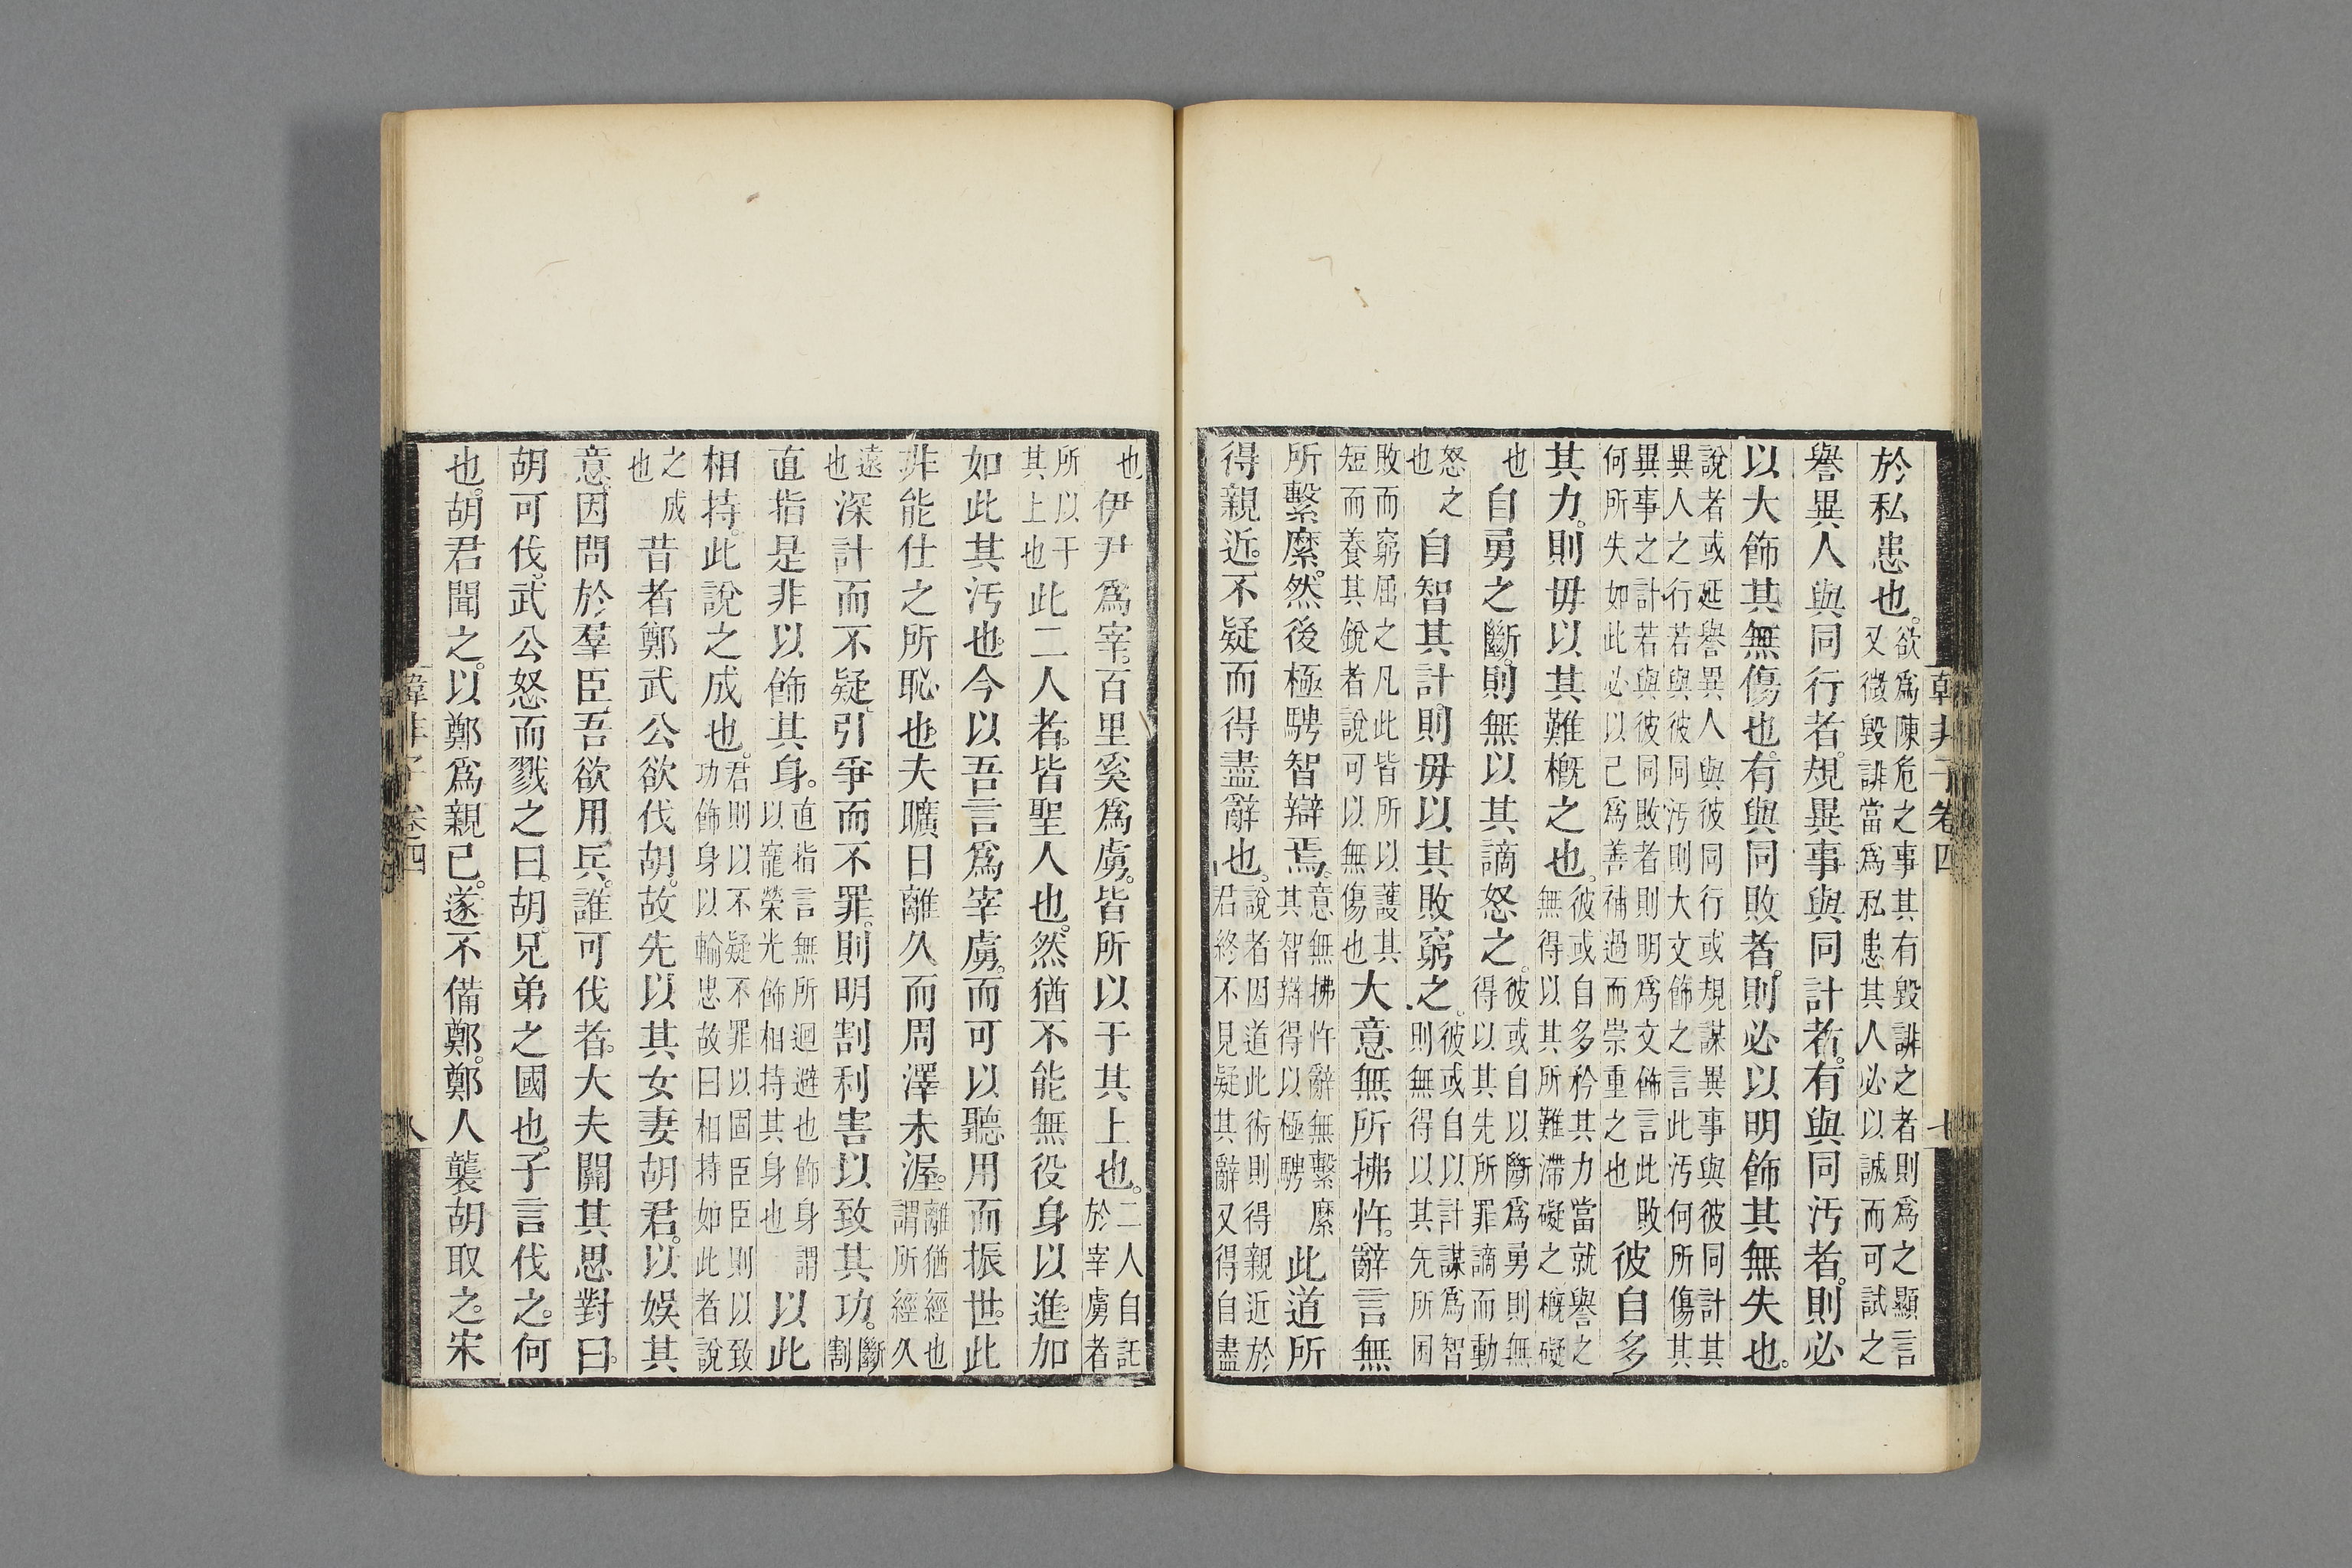 於私患也。欲爲陳危之事其有毀誹之者則爲之顯言又徵毀誹當爲私患其人必以誠而可試之
譽異人與同行者。規異事與同計者。有與同汚者。則必
以大飾其無傷也。有與同敗者。則必以明飾其無失也。
說者或延譽異人與彼同行或規謀異事與彼同計其異人之行若與彼同汚則大文飾之言此汚何所傷其
異事之計若與彼同敗者則明爲文飾言此敗何所失如此必以己爲善補過而崇重之也彼自多
其力。則毋以其難概之也。彼或自多矜其力當就譽之無得以其所難滯礙之概礙
也自勇之斷。則無以其謫怒之。彼或自以斷爲勇則無得以其先所罪謫而動
怒之也自智其計。則毋以其敗窮之。彼或自以計謀爲智則無得以其先所困
敗而窮屈之凡此皆所以護其短而養其銳者說可以無傷也大意無所拂忤。辭言無
所繫縻。然後極騁智辯焉。意無拂忤辭無繫縻其智辯得以極騁此道所
得親近。不疑而得盡辭也。說者因道此術則得親近於君終不見疑其辭又得自盡
韓非子卷四 七
也伊尹爲宰。百里奚爲虜。皆所以干其上也。二人自託於宰虜者
所以干其上也此二人者。皆聖人也。然猶不能無役身以進。加
如此其汚也。今以吾言爲宰虜。而可以聽用而振世。此
非能仕之所恥也。夫曠日離久而周澤未渥。離猶經也謂所經久
遠也深計而不疑。引爭而不罪。則明割利害以致其功。斷割
直指是非以飾其身。直指言無所迴避也飾身謂以寵榮光飾相持其身也以此
相持。此說之成也。君則以不疑不罪以固臣臣則以致功飾身以輸忠故曰相持如此者說
之成也昔者鄭武公欲伐胡。故先以其女妻胡君。以娛其
意。因問於羣臣。吾欲用兵。誰可伐者。大夫關其思對曰。
胡可伐。武公怒而戮之曰。胡。兄弟之國也。子言伐之。何
也。胡君聞之。以鄭爲親己。遂不備鄭。鄭人襲胡取之。宋
韓非子 卷四 八